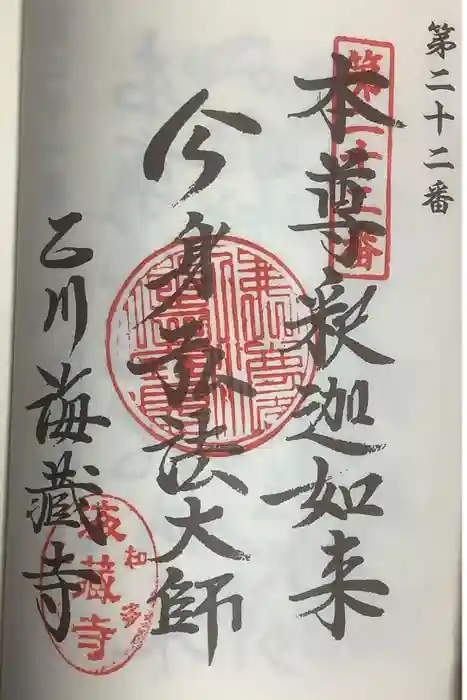 第二十二番
第二十二番
本尊釈迦如来
今身弘法大師
乙川海蔵寺
知多
海蔵寺